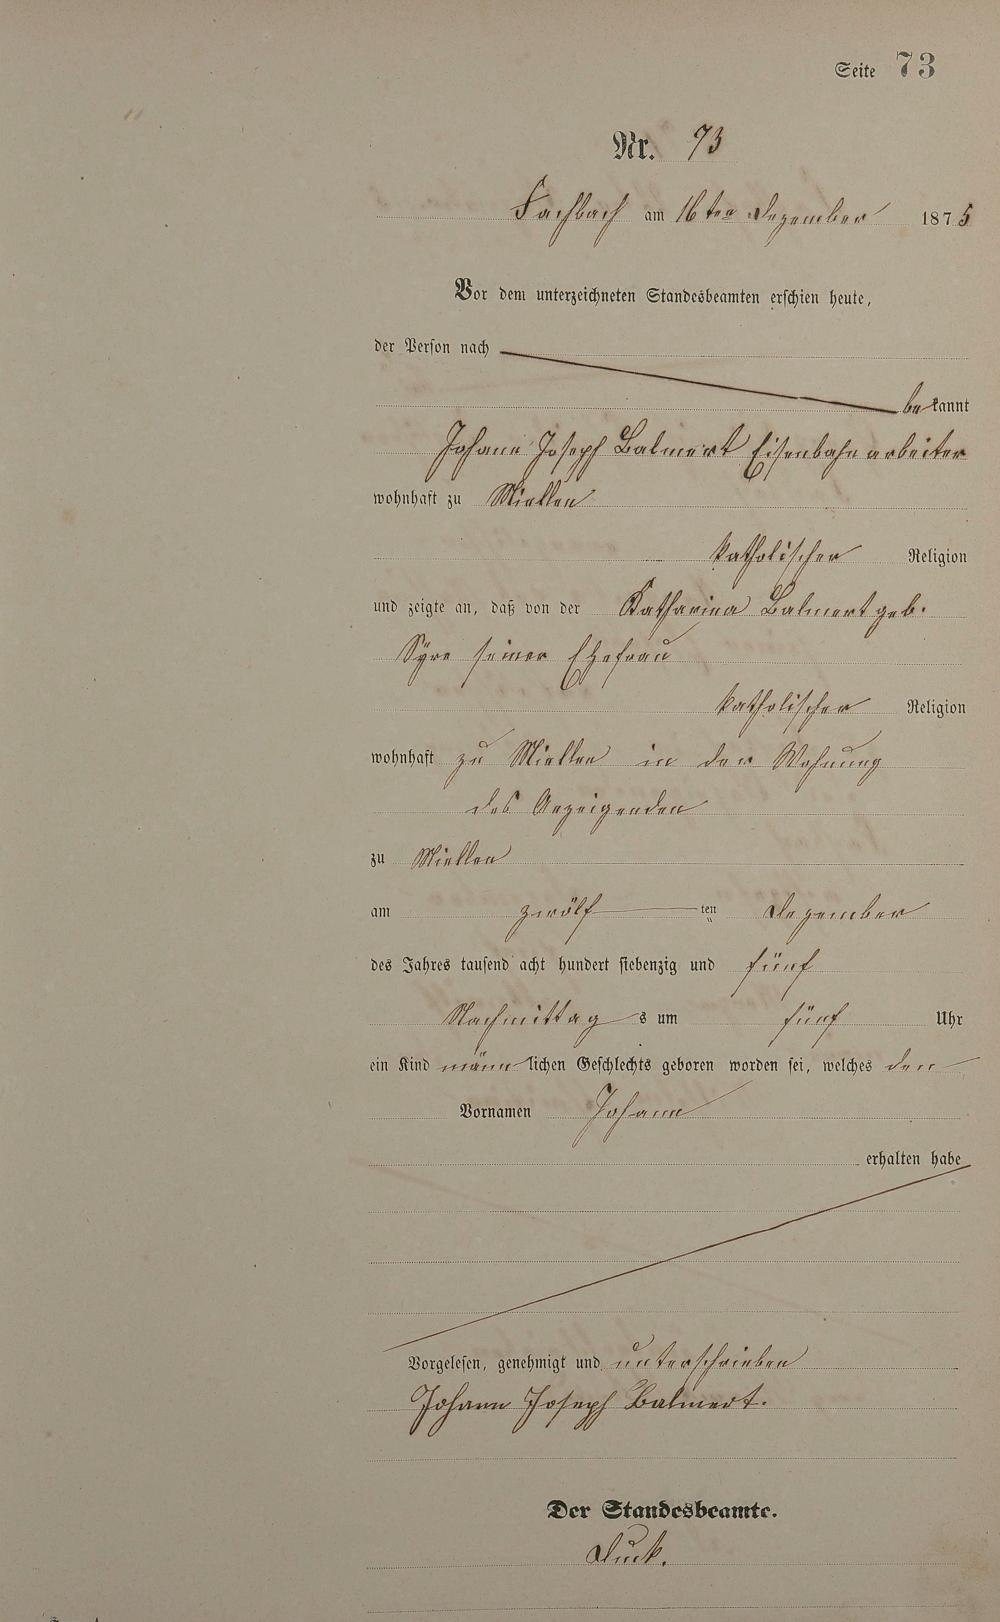 Seite 73
Nr. 73
Fachbach am 16ten Dezember 1875
Vor dem unterzeichneten Standesbeamten erschien heute,
der Person nach
bekannt
Johann Joseph Balmert Eisenbahnarbeiter
wohnhaft zu Miellen
katholischer Religion
und zeigte an, daß von der Katharina Balmert geb.
Syre seiner Ehefrau
katholischer Religion
wohnhaft zu Miellen in der Wohnung
des Anzeigenden
zu Miellen
am zwölf ten Dezember
des Jahres tausend acht hundert siebenzig und fünf
Nachmittags um fünf Uhr
ein Kind männlichen Geschlechts geboren worden sei, welches den
Vornamen Johann
erhalten habe
Vorgelesen, genehmigt und unterschrieben
Johann Joseph Balmert.
Der Standesbeamte.